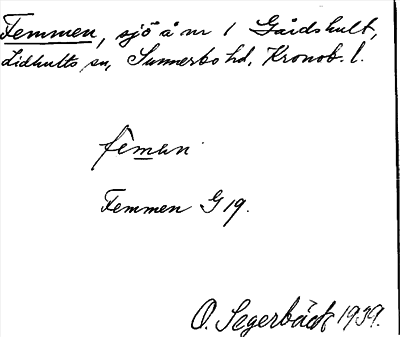 Femmen, sjö å nr 1 Gårdshult,
Lidhults sn, Sunnerbo hd, Kronob. l.
femen
Femmen G 19.
O. Segerbäck 1939.